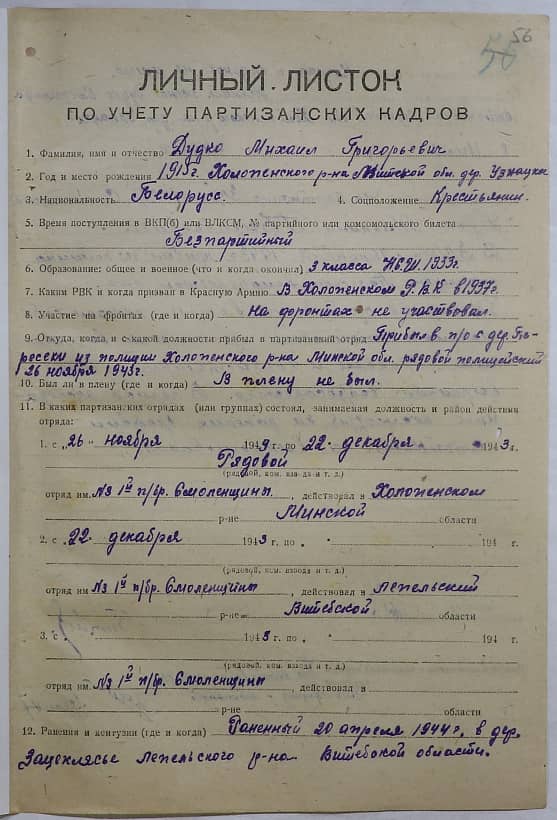 56
56
ЛИЧНЫЙ ЛИСТОК
ПО УЧЕТУ ПАРТИЗАНСКИХ КАДРОВ
1. Фамилия, имя и отчество Дудко Михаил Григорьевич
2. Год и место рождения 1915г. Холопенского р-на Минской обл. дер. Узнацк
3. Национальность Белорусс. 4. Соцположение Крестьянин.
5. Время поступления в ВКП(б) или ВЛКСМ, № партийного или комсомольского билета
Безпартийный
6. Образование: общее и военное (что и когда окончил) 3 класса 1933г.
7. Каким РВК и когда призван в Красную Армию В Холопенском Р.В.К в 1937г.
8. Участие на фронтах (где и когда) на фронтах не участвовал.
9. Откуда, когда и с какой должности прибыл в партизанский отряд Прибыл в п/о с дер. Пе-
ресеки из полиции Холопенского р-на Минской обл. рядовой полицейский
26 ноября 1943г.
10. Был ли в плену (где и когда) В плену не был.
11. В каких партизанских отрядах (или группах) состоял, занимаемая должность и район действия
отряда:
1. с „26" ноября 1943 г. по 22 декабря 1943 г.
Рядовой
(рядовой, ком. взвода и т. д.)
отряд им. №3 1й п/бр. Смоленщины, действовал в Холопенском
р-не Минской области
2. с „22 декабря 1943 г. по 194 г.
(рядовой, ком. взвода и т. д.)
отряд им №3 1й п/бр. Смоленщины, действовал в Лепельский
р-не Витебской области
3. с 1943 г. по 194 г.
(рядовой, ком. взвода и т. д.)
отряд им. №3 1й п/бр. Смоленщины, действовал в
р-не области
12. Ранения и контузии (где и когда) Раненный 20 апреля 1944г, в дер.
Лепельского р-на Витебской области.